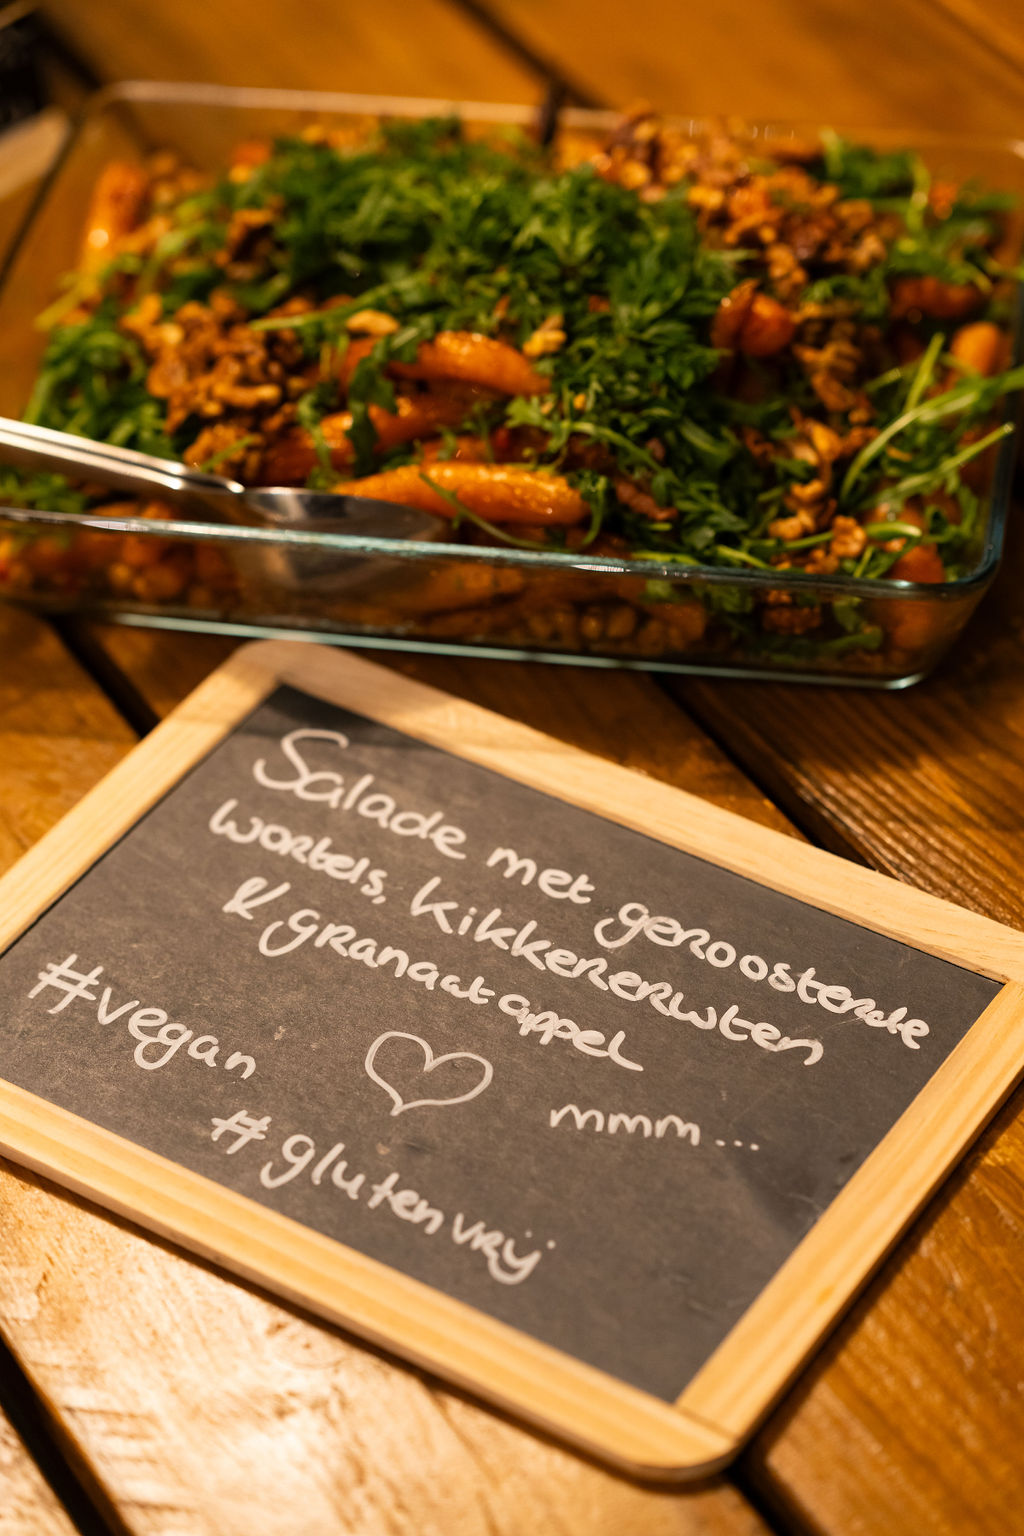 Salade met geroosterde
wortels, kikkererwten
& granaatappel
#vegan
mmm...
#glutenvrij